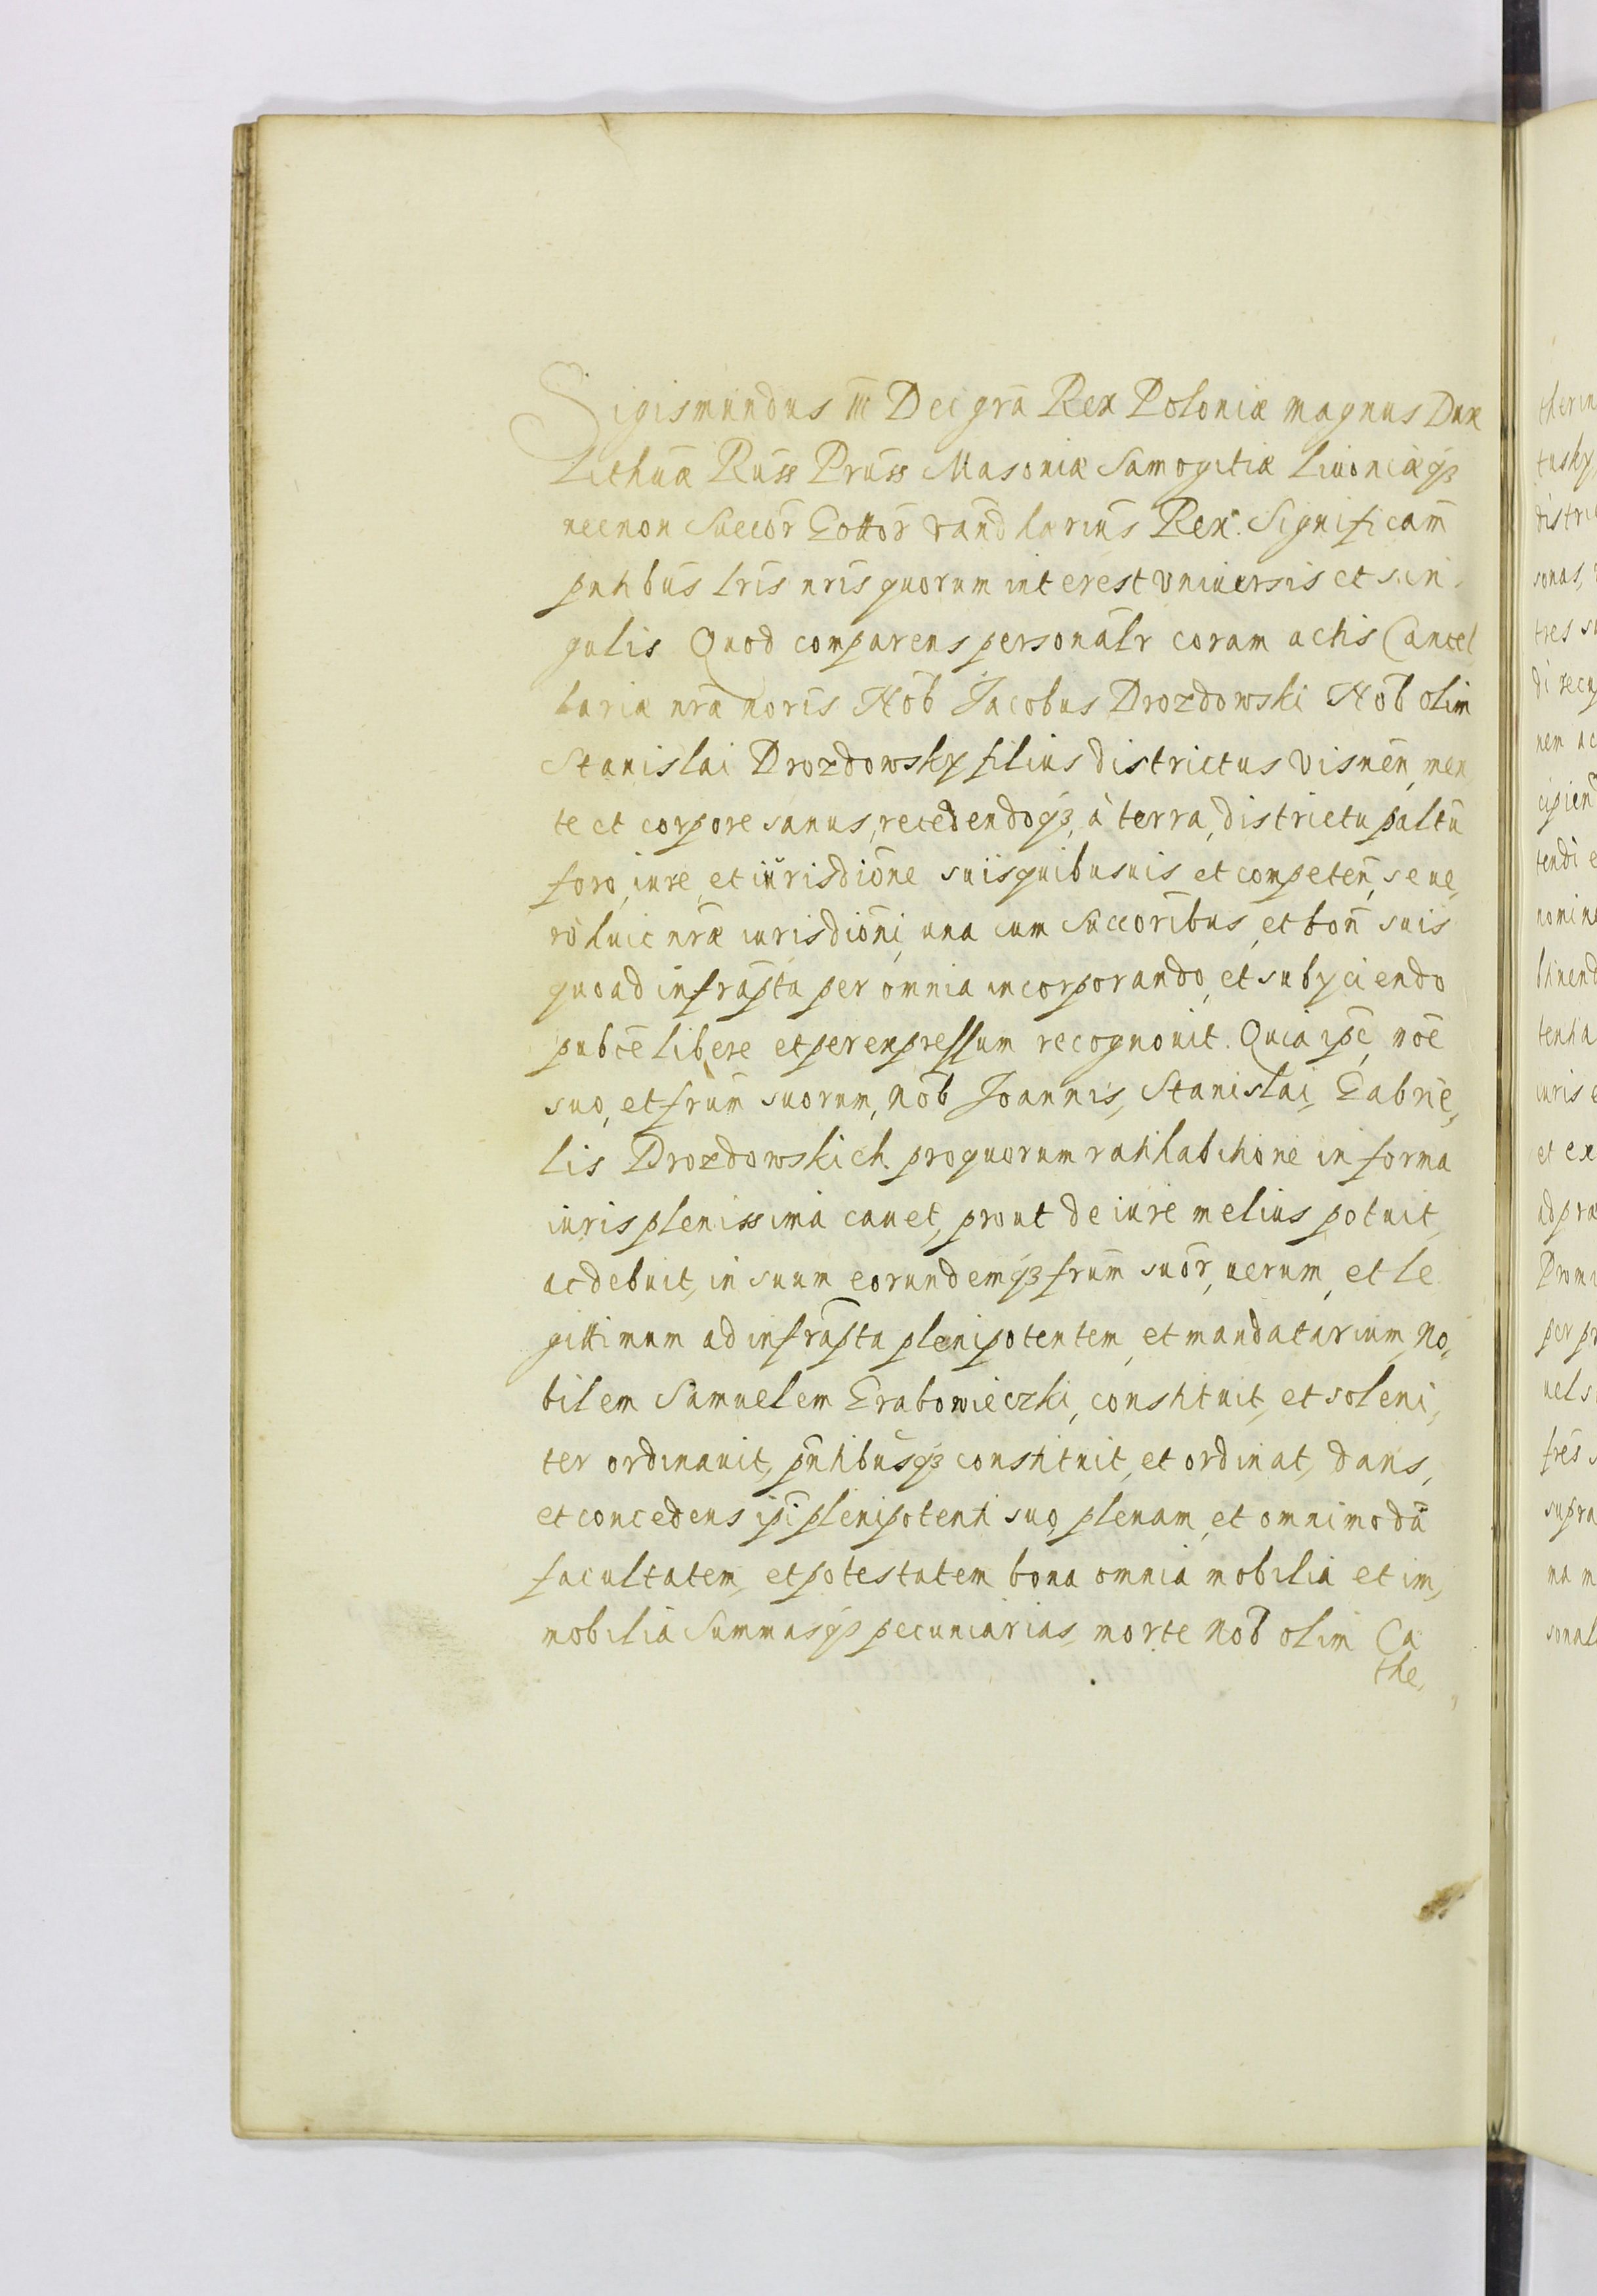 Sigismundus III Dei gra̅ Rex Poloniæ magnus Dux
Lithua̅ Russ Pruss Masoniæ Samogitiæ Liuoniæq3
necnon Sueco̅r Gotto̅r Vand̅ larius Rex. Significam̅
pn̅tibus lr̅is nr̅is quorum interest vniuersis et sin,
gulis Quod comparens persona̅lr coram actis Cancel
lariæ nr̅a noris No̅b Jacobus Drozdowski No̅b olim
Stanislai Drozdowsky filius districtus Visnen̅, men
te et corpore sanus, recedendoq3, à terra, districtu paltu̅
foro, iure, et iurisdio̅ne suis quibusuis et competen̅, se ue,
rò huic nr̅æ iurisdio̅ni, una cum Succo̅ribus, et bon̅ suis
quoad infra̅pta per omnia incorporando, et subyciendo
pubce̅ libere et per expressum recognouit. Quia ipe̅, noe̅
suo, et fru̅m suorum, No̅b Joannis, Stanislai, Gabrie,
lis Drozdowskich, pro quorum ratihabitione in forma
iuris plenissima cauet, prout de iure melius potuit,
ac debuit, in suum eorundemq3 fru̅m suo̅r, uerum, et le
gittimum ad infra̅pta plenipotentem, et mandatarium, No,
bilem Samuelem Grabowieczki, constituit, et soleni,
ter ordinauit, pn̅tibusq3 constituit, et ordinat, dans,
et concedens ipi̅ plenipotenti suo, plenam, et omnimodu̅
facultatem, et potestatem bona omnia mobilia et im,
mobilia Summasq3 pecuniarias, morte No̅b olim Ca
the,